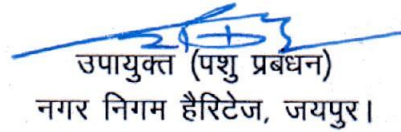 उपायुक्त (पशु प्रबंधन)
नगर निगम हैरिटेज, जयपुर।